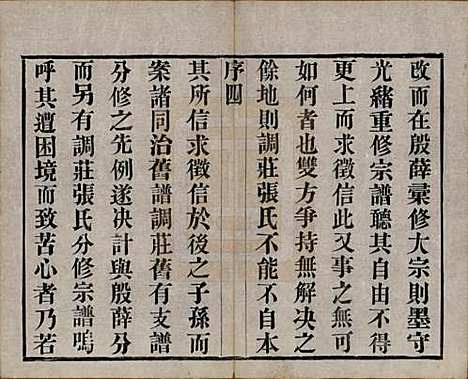 改而在殷薛彙修大宗則墨守
光緒重修宗譜聽其自由不得
更上而求徵信此又事之無可
如何者也雙方爭持無解決之
餘地則調莊張氏不能不自本
序四
其所信求徵信於後之子孫而
案諸同治舊譜調莊舊有支譜
分修之先例遂决計與殷薛分
而另有調莊張氏分修宗譜嗚
呼其遭困境而致苦心者乃若